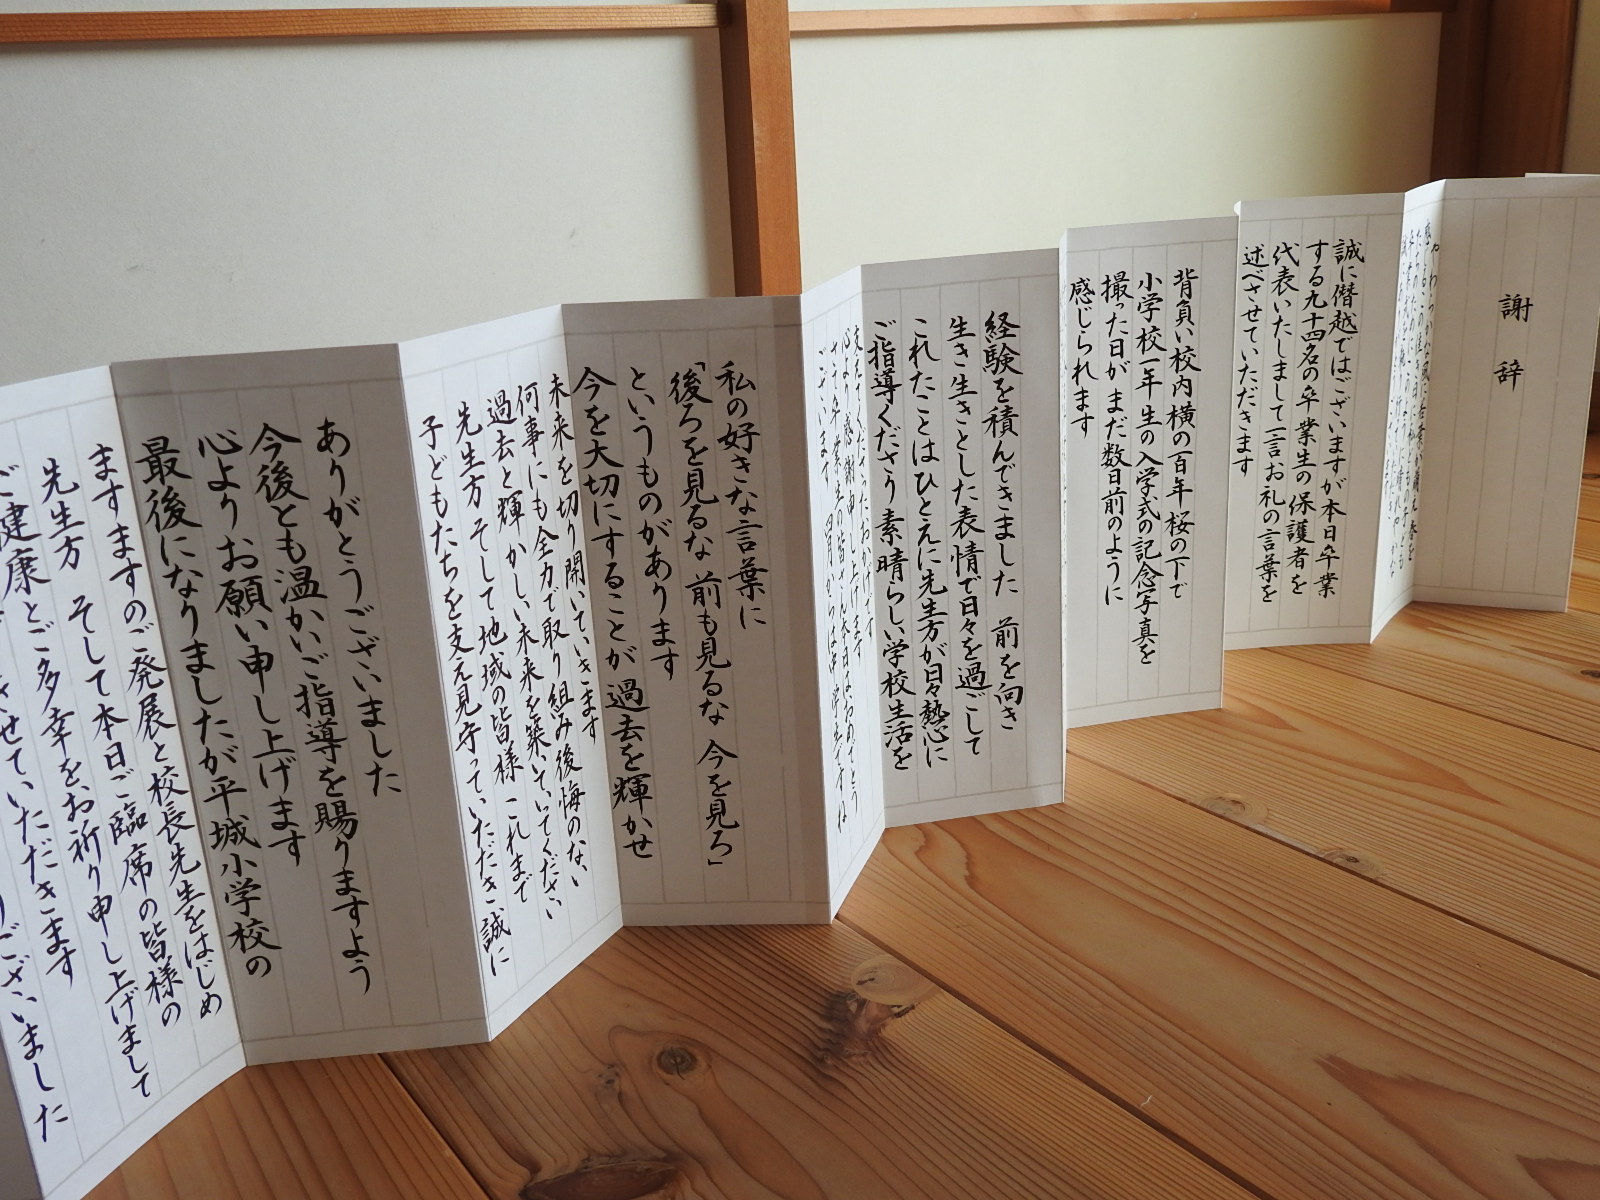 謝辞
誠に僭越ではございますが本日卒業
する九十四名の卒業生の保護者を
代表いたしまして一言お礼の言葉を
述べさせていただきます
背負い校内横の百年桜の下で
小学校一年生の入学式の記念写真を
撮った日がまだ数日前のように
感じられます
経験を積んできました 前を向き
生き生きとした表情で日々を過ごして
これたことはひとえに先生方が日々熱心に
ご指導くださり素晴らしい学校生活を
支えてくださったおかげです
心より感謝申し上げます
ございます 四月からは中学生ですね
私の好きな言葉に
「後ろを見るな 前も見るな 今を見ろ」
というものがあります
今を大切にすることが過去を輝かせ
未来を切り開いていきます
何事にも全力で取り組み後悔のない
過去と輝かしい未来を築いていってください
先生方 そして地域の皆様 これまで
子どもたちを支え見守っていただき誠に
ありがとうございました
今後とも温かいご指導を賜りますよう
心よりお願い申し上げます
最後になりましたが平城小学校の
ますますのご発展と校長先生をはじめ
先生方 そして本日ご臨席の皆様の
ご健康とご多幸をお祈り申し上げまして
させていただきます
ございました